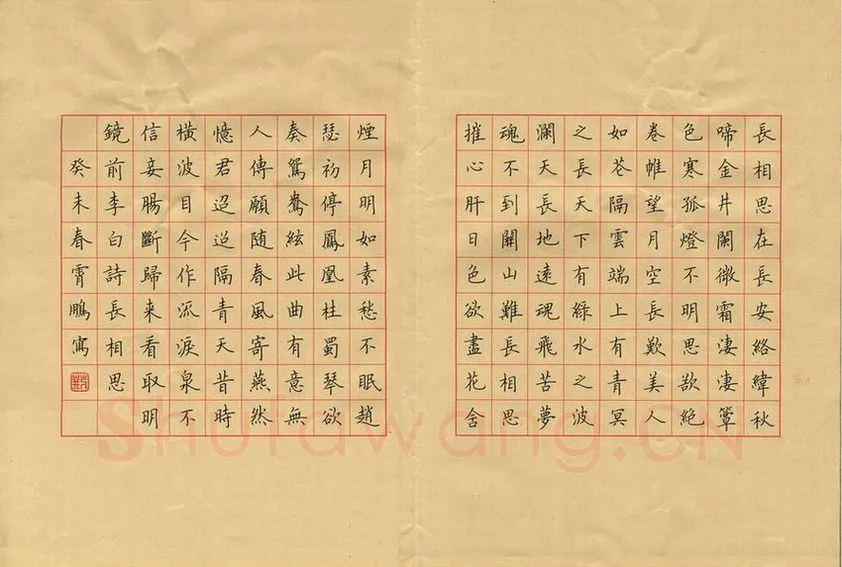 長相思在長安絡緯秋
啼金片闌微霜淒淒簟
色寒孤燈不明思欲絕
卷帷望月空長歎美人
如花隔雲端上有青冥
之長天下有綠水之波
瀾天長地遠魂飛苦夢
魂不到關山難長相思
摧心肝日色欲盡花含
煙月明如素愁不眠趙
瑟初停鳳凰柱蜀琴欲
奏鴛鴦絃此曲有意無
人傳願隨春風寄燕然
憶君迢迢隔青天昔時
橫波目今作流淚泉不
信妾腸斷歸来看取明
鏡前李白詩長相思
癸未春霄鵬寫
Shufawang.CN